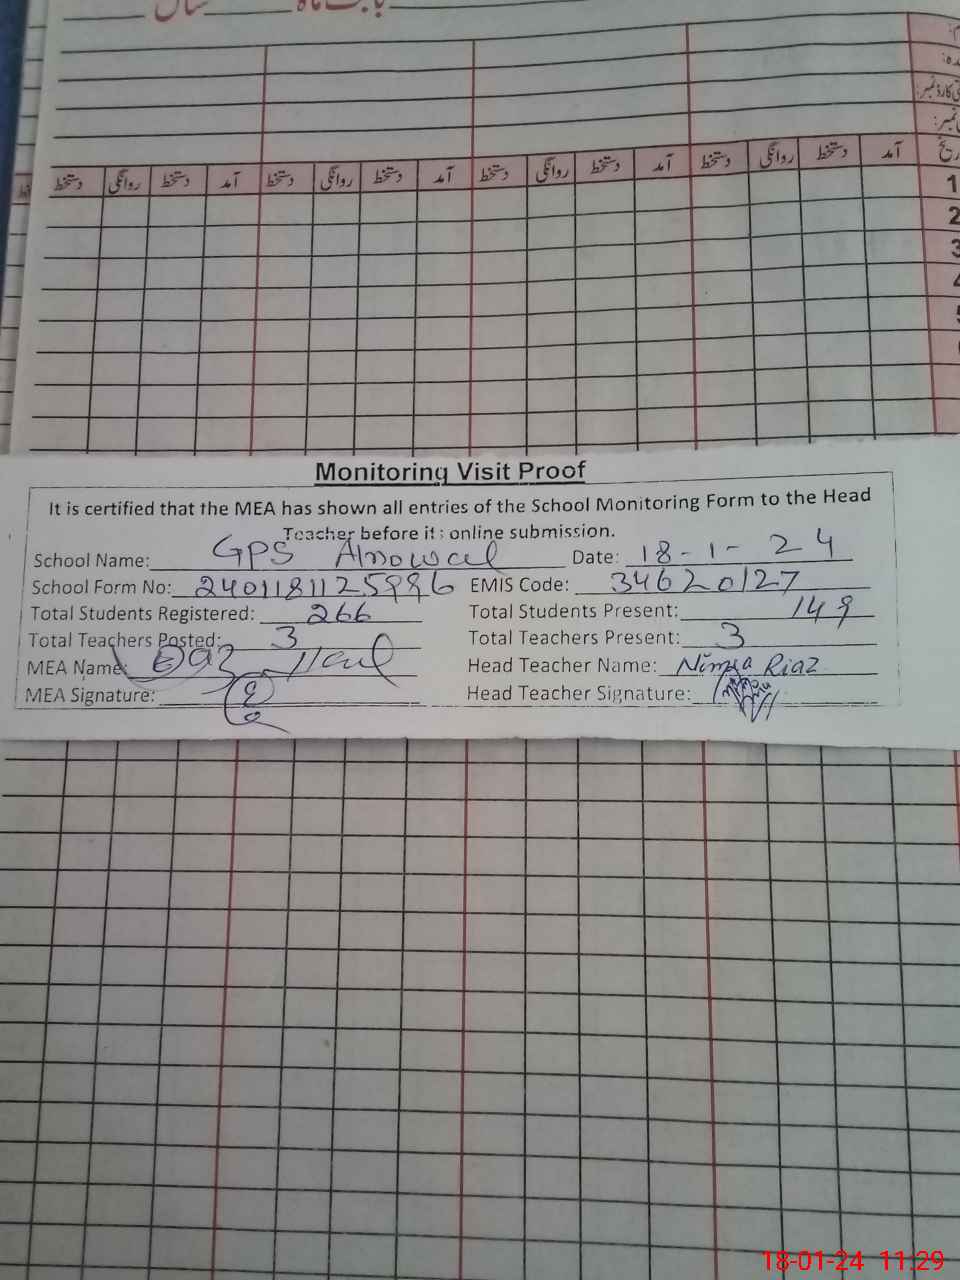 بابت ماہ سال
تاریخ آمد دستخط روانگی دستخط آمد دستخط روانگی دستخط آمد دستخط روانگی دستخط آمد دستخط روانگی دستخط
1
2
3
4
5
Monitoring Visit Proof
It is certified that the MEA has shown all entries of the School Monitoring Form to the Head
Teacher before its online submission.
School Name: GPS Date: 18-1-24
School Form No: 2401181125996 EMIS Code: 34620127
Total Students Registered: 266 Total Students Present: 149
Total Teachers Posted: 3 Total Teachers Present: 3
MEA Name: Head Teacher Name: Nimra Riaz
MEA Signature: Head Teacher Signature:
18-01-24 11:29